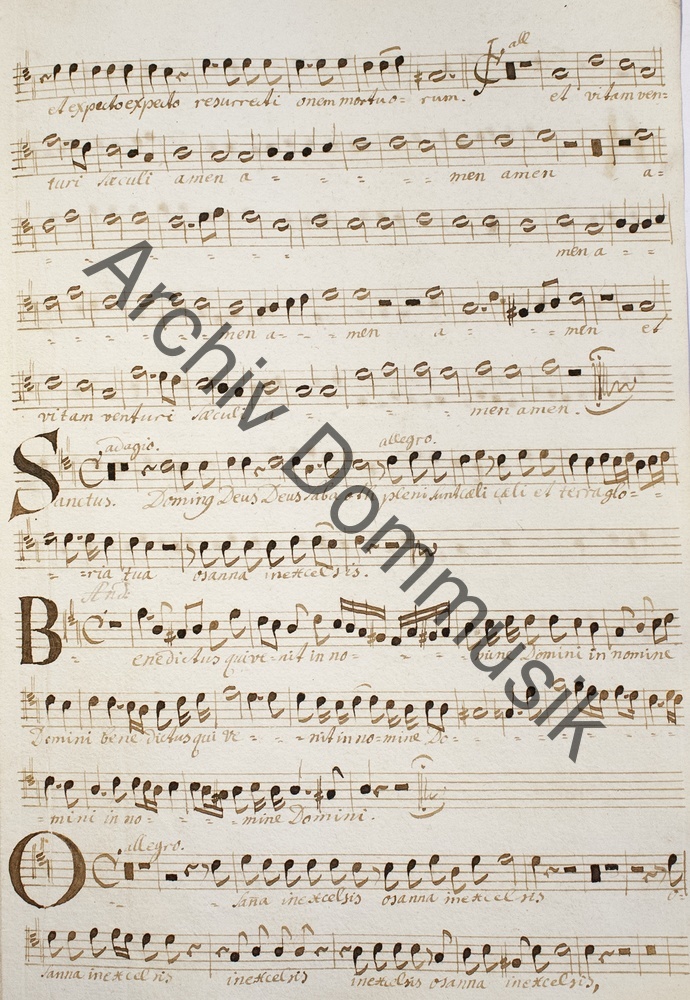 all
et expecto expecto resurrecti onem mortuo = rum. et vitam ven=
turi sæculi amen a = = = = = men amen a=
= = = = = = men a = =
= = = = men a = = men a = = men et
vitam venturi sæculi a = = = = men amen.
adagio. allegro.
Sanctus. Deus Deus sabaoth pleni sunt cæli cæli et terra glo= =
= = ria tua osanna in excelsis.
And:
Benedictus qui ve = nit in no = = = = mine Domini in nomine
Domini bene dictus qui ve = = = nit in no = mine Do = = = =
= mini in no = = = = mine Domini.
allegro.
O sana in excelsis osanna in excelsis o=
sanna in excelsis in excelsis in excelsis osanna in excelsis,
Archiv Dommusik